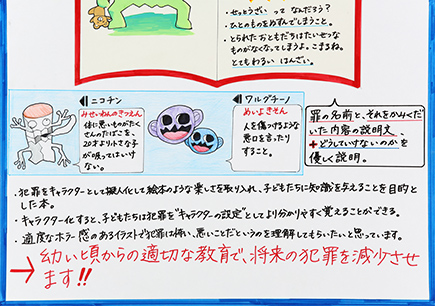 ・せっとうざい って なんだろう？
・ひとのものをぬすんでしまうこと。
・とられたおともだちはたいせつな
ものがなくなってしまうよ。こまるね。
とてもわるい はんざい。
ニコチン
みせいねんのきつえん
体に悪いものがたく
さんのたばこを、
20才より小さな子
が吸ってはいけ
ない。
ワルグチーノ
めいよきそん
人を傷つけるような
悪口を言ったり
すること。
罪の名前と、それをかみくだ
いた内容の説明文
+どうしていけないのかを
優しく説明。
・犯罪をキャラクターとして擬人化して絵本のような楽しさを取り入れ、子どもたちに知識を与えることを目的と
した本。
・キャラクター化すると、子どもたちは犯罪を“キャラクターの設定”としてより分かりやすく覚えることができる。
・適度なホラー感のあるイラストで犯罪は怖い、悪いことだというのを理解してもらいたいと思っています。
→幼い頃からの適切な教育で、将来の犯罪を減少させ
ます!!